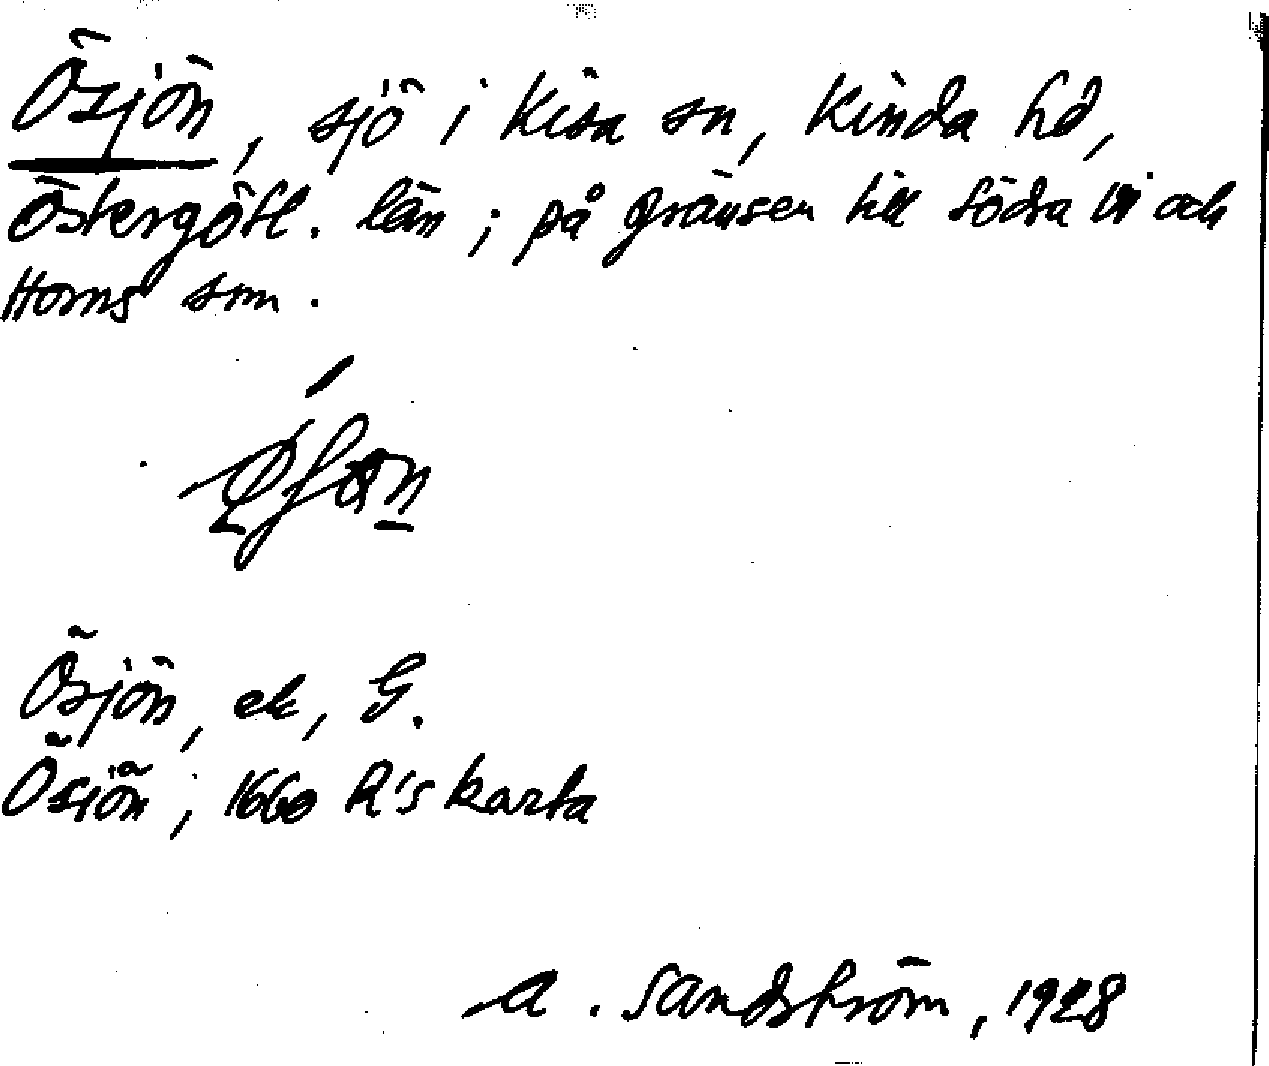 Ösjön, sjö i Kisa sn, Kinda hd,
Östergötl. län; på gränsen till Södra Vi och
Horns snn.
Ösjön, ek, G.
Ösiön; 1660 R's karta
A. Sandström, 1928